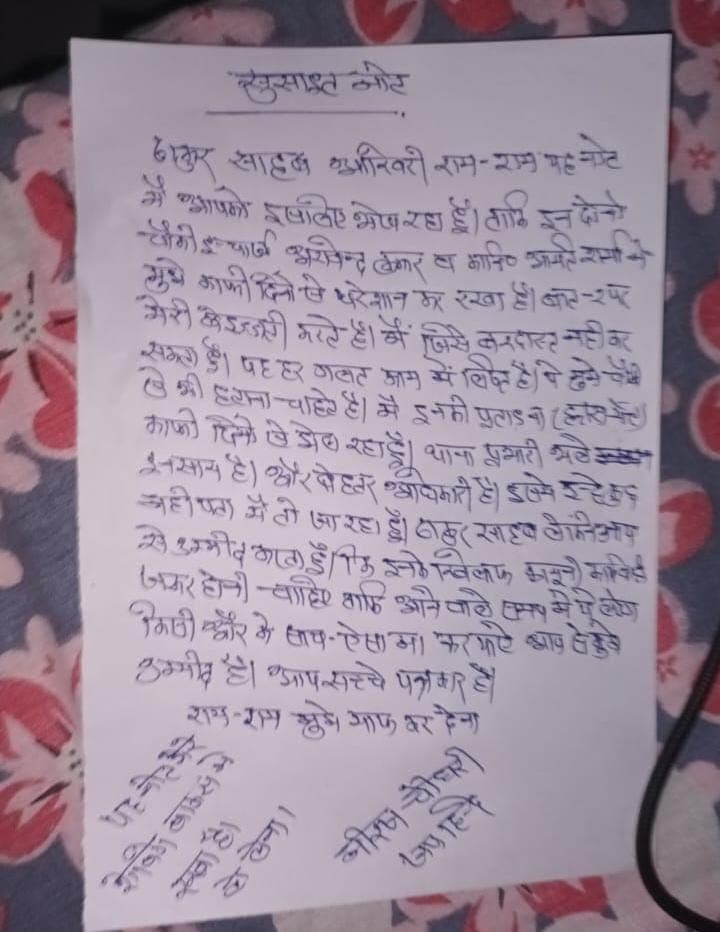 सुसाइड नोट
ठाकुर साहब आखिरी राम-राम यह नोट
मैं आपको इसलिए भेज रहा हूँ। ताकि इन दोनो
चौकी इन्चार्ज अरविन्द कुमार व शर्मा ने
मुझे काफी दिनो से परेशान कर रखा है। बार-२ पर
मेरी बेइज्जती करते है। मैं जिसे बरदास्त नही कर
सकता हूँ। यह हर गलत काम में लिप्त है। ये
से भी हटाना चाहते है। मैं इनकी
काफी दिनो से झेल रहा हूँ। थाना प्रभारी भले
इनसान है। और बेहतर अधिकारी है। इसमे इन्हे कुछ
नही पता मैं तो जा रहा हूँ। ठाकुर साहब लेकिन आप
से उम्मीद करता हूँ। कि इनके खिलाफ कानूनी
जरूर होनी चाहिए ताकि आने वाले समय मे ये लोग
किसी और के साथ ऐसा ना कर पाऐ आप से
उम्मीद है। आप सच्चे पत्रकार है।
राम-राम मुझे माफ कर देना
यह नोट
में
रखा है।
ले लेना।
चौधरी
जय हिन्द